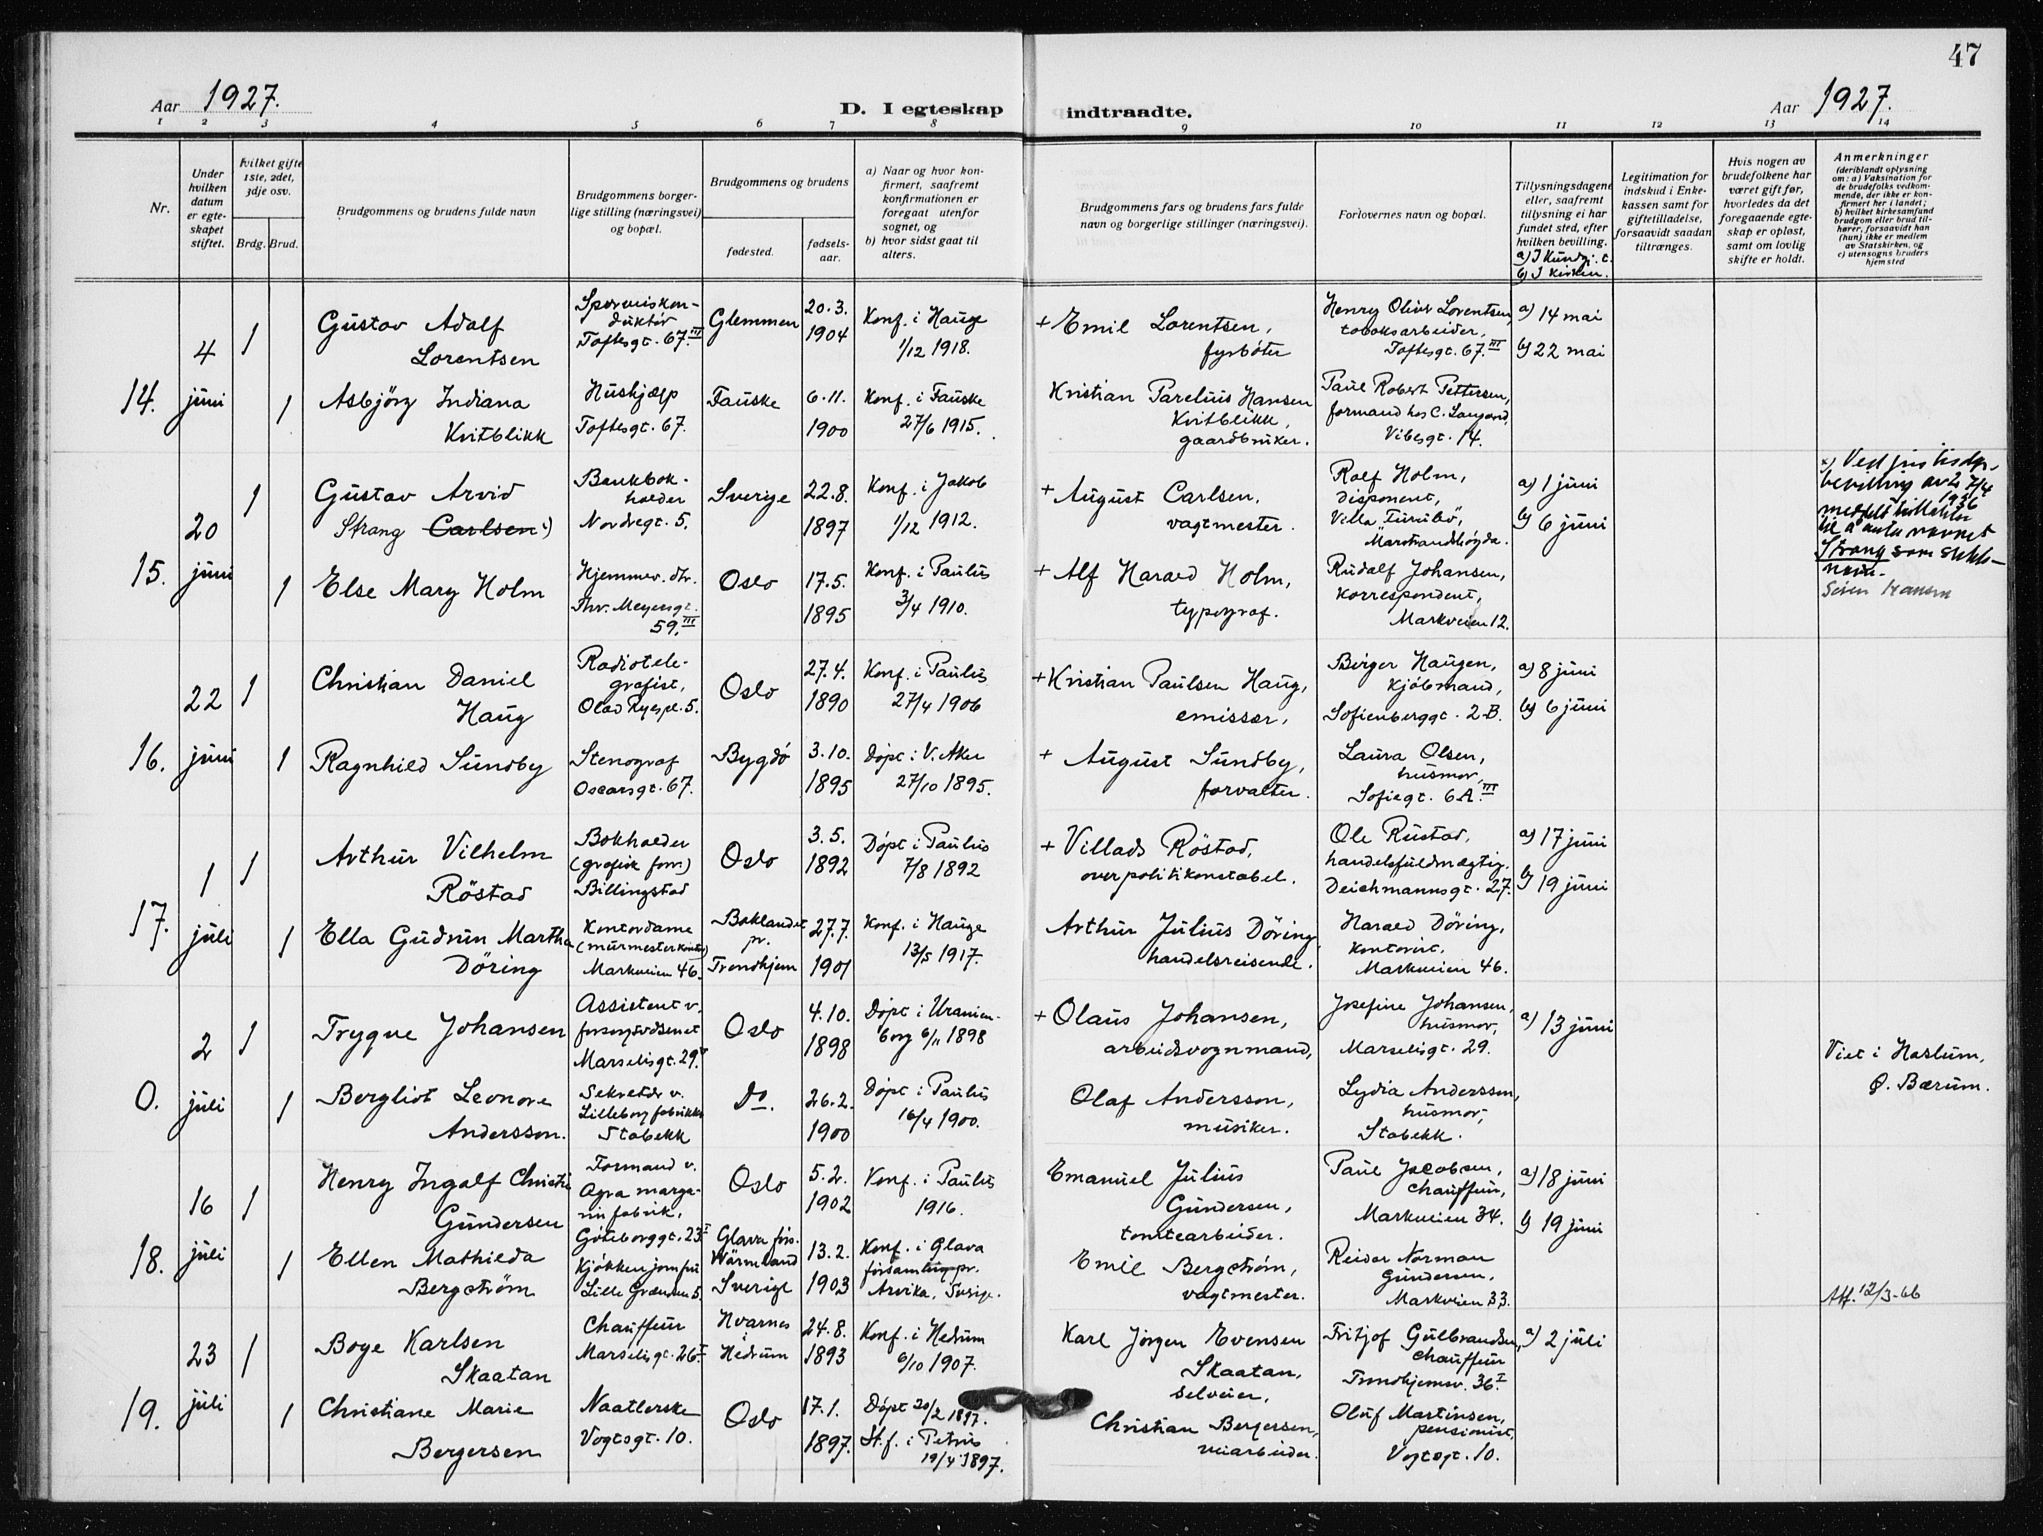 47
Aar 1927.
D. I egteskap indtraadte.
Aar 1927.
1 2 3 4 5 6 7 8 9 10 11 12 13 14
Nr.
Under hvilken datum er egteskapet stiftet.
Hvilket gifte 1ste, 2det, 3dje osv.
Brdg. Brud.
Brudgommens og brudens fulde navn
Brudgommens borgerlige stilling (næringsvei) og bopæl.
Brudgommens og brudens
fødested.
fødselsaar.
a) Naar og hvor konfirmert, saafremt konfirmationen er foregaat utenfor sognet, og
b) hvor sidst gaat til alters.
Brudgommens fars og brudens fars fulde navn og borgerlige stillinger (næringsvei).
Forlovernes navn og bopæl.
Tillysningsdagene eller, saafremt tillysning ei har fundet sted, efter hvilken bevilling.
a) I Kundgj. t.
b) I kirken.
Legitimation for indskud i Enkekassen samt for giftetilladelse, forsaavidt saadan tiltrænges.
Hvis nogen av brudefolkene har været gift før, hvorledes da det foregaaende egteskap er opløst, samt om lovlig skifte er holdt.
Anmerkninger
(deriblandt oplysning om: a) Vaksination for de brudefolks vedkommende, der ikke er konfirmert her i landet;
b) hvilket kirkesamfund brudgom eller brud tilhører, forsaavidt han (hun) ikke er medlem av Statskirken, og
c) utensogns bruders hjemsted
14. 4 juni
1 Gustav Adolf Lorentsen
Sporveiskonduktør Toftesgt. 67.III
Glemmen
20.3. 1904
Konf. i Hauge 1/12 1918.
+ Emil Lorentsen, fyrbøter
Henry Oliver Lorentsen, tobaksarbeider, Toftesgt. 67.III
a) 14 mai
b) 22 mai
1 Asbjörg Indiana Kvitblikk
Hushjælp Toftesgt. 67.
Fauske
6.11. 1900
Konf. i Fauske 27/6 1915.
Kristian Parelius Hansen Kvitblikk, gaardbruker.
Paul Robert Pettersen, formand hos C. Langaard, Vibesgt. 14.
15. 20 juni
1 Gustav Arvid Strang Carlsen x)
Bankbokholder Nordregt. 5.
Sverige
22.8. 1897
Konf. i Jakob 1/12 1912.
+ August Carlsen, vagtmester.
Rolf Holm, disponent, Villa "Furubo", Marstrandhøgda.
a) 1 juni
b) 6 juni
x) Ved justisdep. bevilling av 7/4 1936 meddelt tillatelse til å anta navnet Strang som slektsnavn.
1 Else Mary Holm
Hjemmev. dtr. Thv. Meyersgt. 59.III
Oslo
17.5. 1895
Konf. i Paulus 3/4 1910.
+ Alf Harald Holm, typograf.
Rudolf Johansen, korrespondent, Markveien 12.
16. 22 juni
1 Christian Daniel Haug
Radiotelegrafist, Olad Ryespl. 5.
Oslo
27.4. 1890
Konf. i Paulus 27/4 1906
+ Kristian Paulsen Haug, emissær,
Birger Haugen, kjöbmand, Sofienberggt. 2-B.
a) 8 juni
b) 6 juni
1 Ragnhild Sundby
Stenograf Oscarsgt. 67.
Bygdö
3.10. 1895
Döpt i V. Aker 27/10 1895.
+ August Sundby, forvalter.
Laura Olsen, husmor, Sofiegt. 6A.III
17. 1 juli
1 Arthur Vilhelm Röstad
Bokholder (grafisk forr.) Billingstad
Oslo
3.5. 1892
Döpt i Paulus 7/8 1892
+ Villads Röstad, overpolitikonstabel.
Ole Rustad, handelsfuldmægtig. Deichmannsgt. 27.
a) 17 juni
b) 19 juni
1 Ella Gudrun Martha Döring
Kontordame (murmesterkontor) Markveien 46.
Baklandet pr. Trondhjem
27.7. 1901
Konf. i Hauge 13/5 1917.
Arthur Julius Döring, handelsreisende.
Harald Döring, kontorist. Markveien 46.
0. 2 juli
1 Trygve Johansen
Assistent v. forsorgsvæsenet Marselisgt. 29.
Oslo
4.10. 1898
Döpt i Uranienborg 6/11 1898
+ Olaus Johansen, arbeidsvognmand,
Josefine Johansen, husmor, Marselisgt. 29.
a) 13 juni
Viet i Haslum, Ö. Bærum.
1 Bergliot Leonore Andersson.
Sekretær v. Lilleborg fabrikker Stabekk
Do.
26.2. 1900
Döpt i Paulus 16/4 1900.
Olaf Andersson, musiker.
Lydia Andersson, husmor, Stabekk.
18. 16 juli
1 Henry Ingolf Christian Gundersen
Formand v. Agra margarin fabrik, Göteborggt. 23I
Oslo
5.2. 1902
Konf. i Paulus 1916.
Emanuel Julius Gundersen, tomtearbeider.
Paul Jacobsen, chauffeur, Markveien 34.
a) 18 juni
b) 19 juni
1 Ellen Mathilda Bergström
Kjökkenjomfru Lille Grændsen 5.
Glava förs. Wärmland Sverige
13.2. 1903
Konf. i Glava församling pr. Arvika, Sverige.
Emil Bergström, vagtmester.
Reidar Norman Gundersen, Markveien 33.
Att. 12/3-66
19. 23 juli
1 Boye Karlsen Skaatan
Chauffeur Marselisgt. 26I
Hvarnes i Hedrum
24.8. 1893
Konf. i Hedrum 6/10 1907.
Karl Jörgen Evensen Skaatan, selveier,
Fritjof Gulbrandsen, chauffeur Trondhjemsv. 36.I
a) 2 juli
1 Christiane Marie Bergersen
Naatlerske Vogtsgt. 10.
Oslo
17.1. 1897.
Döpt 20/2 1897. St.f. i Petrus 19/4 1897.
Christian Bergersen, veiarbeider.
Oluf Martinsen, pensionist, Vogtsgt. 10.